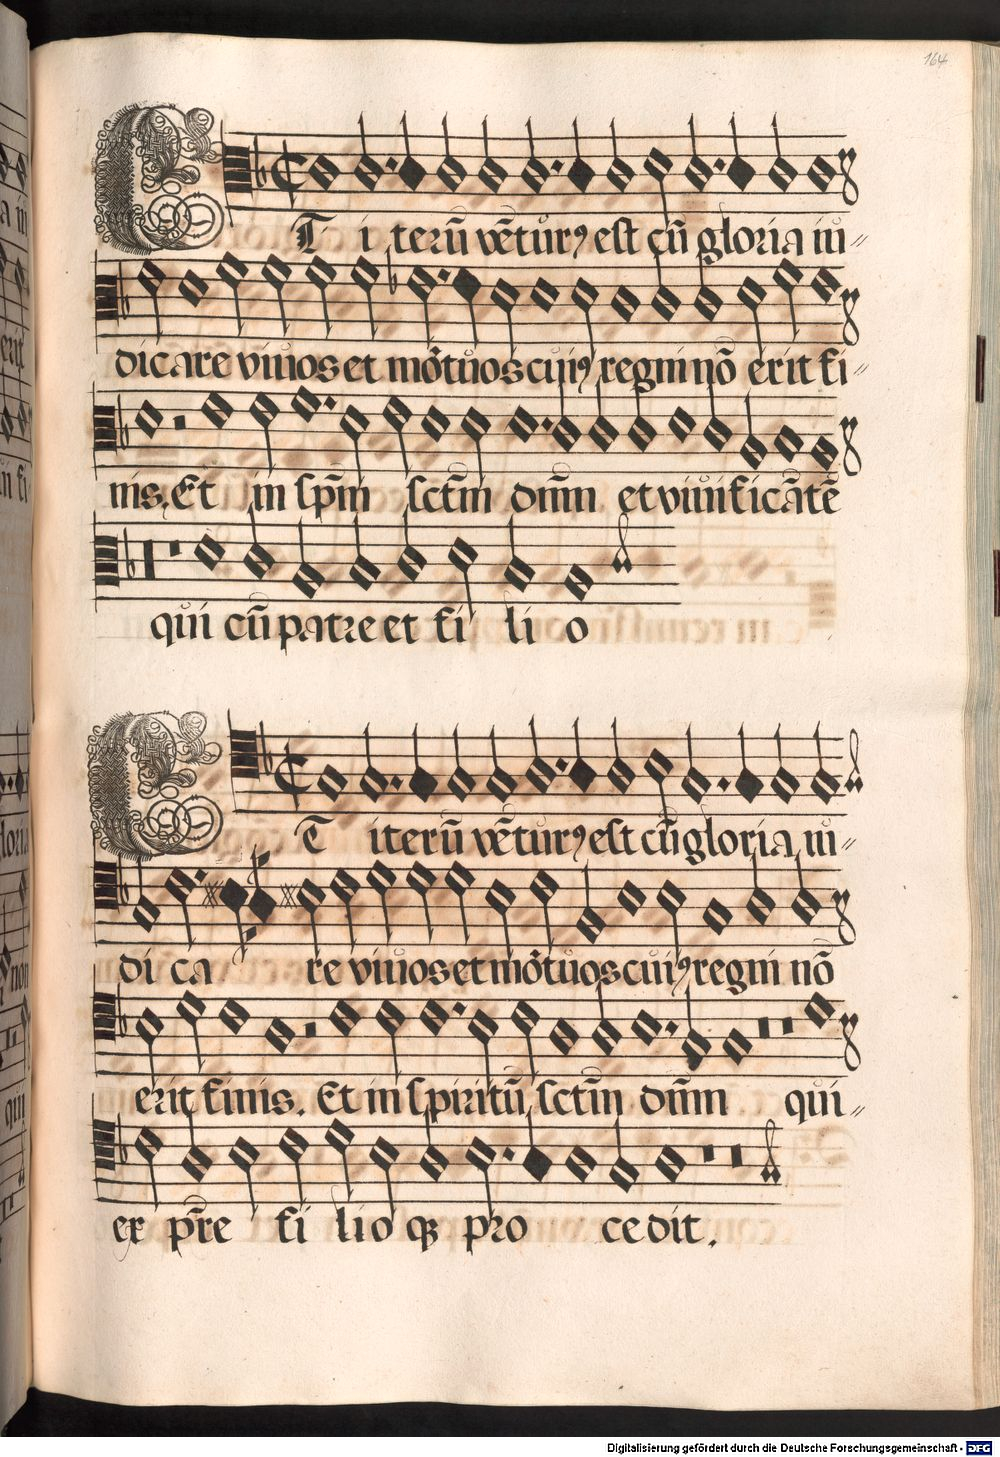 164
ET iterū vētur9 est cū gloria iu-
dicare viuos et mōtuos cui9 regni nō erit fi-
nis. Et in spm̄ sctm̄ dnm̄ et viuificātē
qui cū patre et fi li o
ET iterū vētur9 est cū gloria iu-
di ca re viuos et mōtuos cui9 regni nō
erit finis. Et in spiritū sctm̄ dnm̄ qui
ex pr̄e fi lio qꝫ pro cedit.
Digitalisierung gefördert durch die Deutsche Forschungsgemeinschaft - DFG